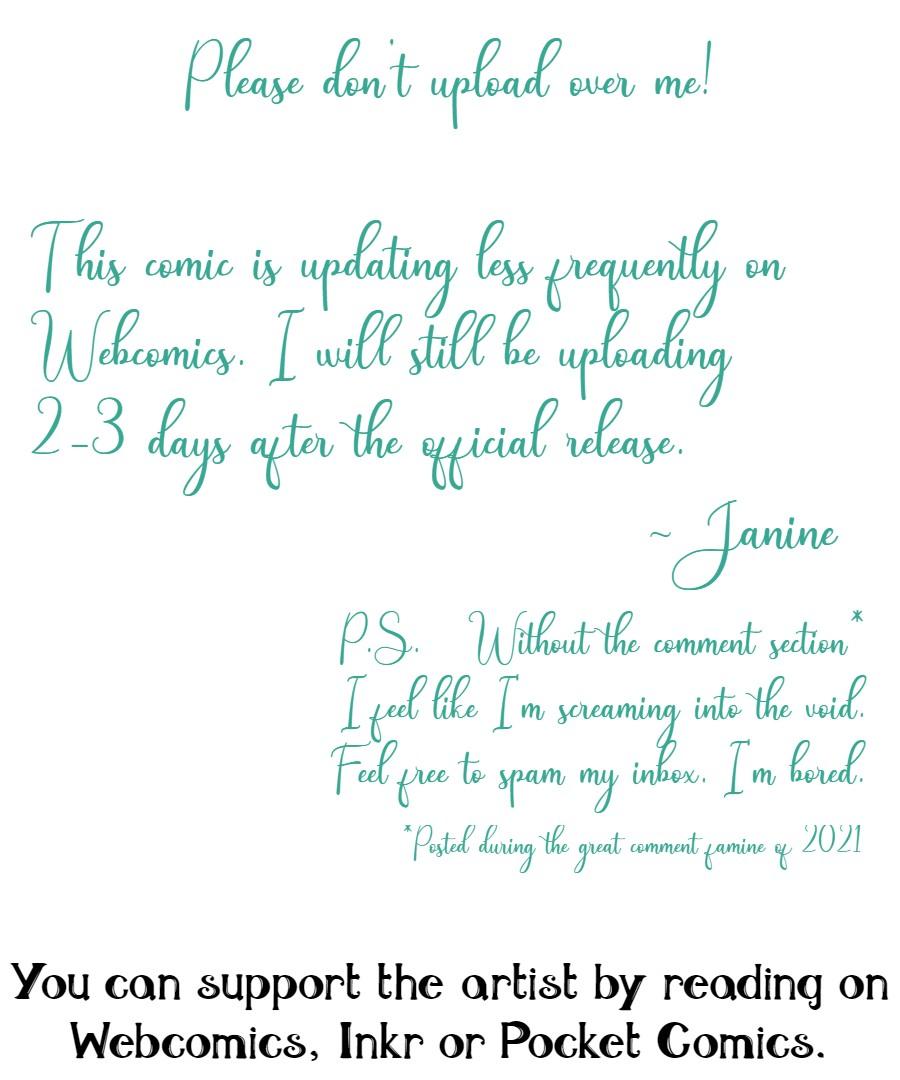 Please don't upload over me!
This comic is updating less frequently on
Webcomics. I will still be uploading
2-3 days after the official release.
~ Janine
P.S. Without the comment section*
I feel like I'm screaming into the void.
Feel free to spam my inbox. I'm bored.
*Posted during the great comment famine of 2021
You can support the artist by reading on
Webcomics, Inkr or Pocket Comics.